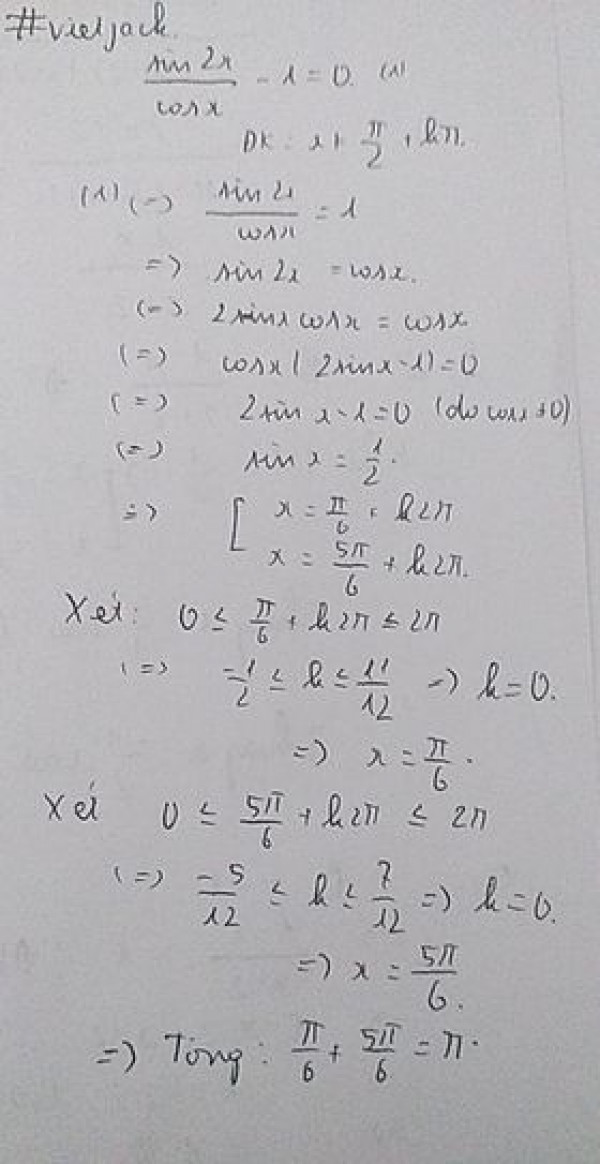 #vietjack.
sin 2x / cosx - 1 = 0. (1)
ĐK: x ≠ π/2 + kπ.
(1) (=) sin 2x / cosx = 1
=) sin 2x = cosx.
(=) 2sinx cosx = cosx
(=) cosx ( 2sinx - 1) = 0
(=) 2sin x - 1 = 0 (do cosx ≠ 0)
(=) sin x = 1/2.
=) [ x = π/6 + k2π
x = 5π/6 + k2π.
Xét: 0 ≤ π/6 + k2π ≤ 2π
(=) -1/2 ≤ k ≤ 11/12 =) k = 0.
=) x = π/6.
Xét 0 ≤ 5π/6 + k2π ≤ 2π
(=) -5/12 ≤ k ≤ 7/12 =) k = 0.
=) x = 5π/6.
=) Tổng: π/6 + 5π/6 = π.